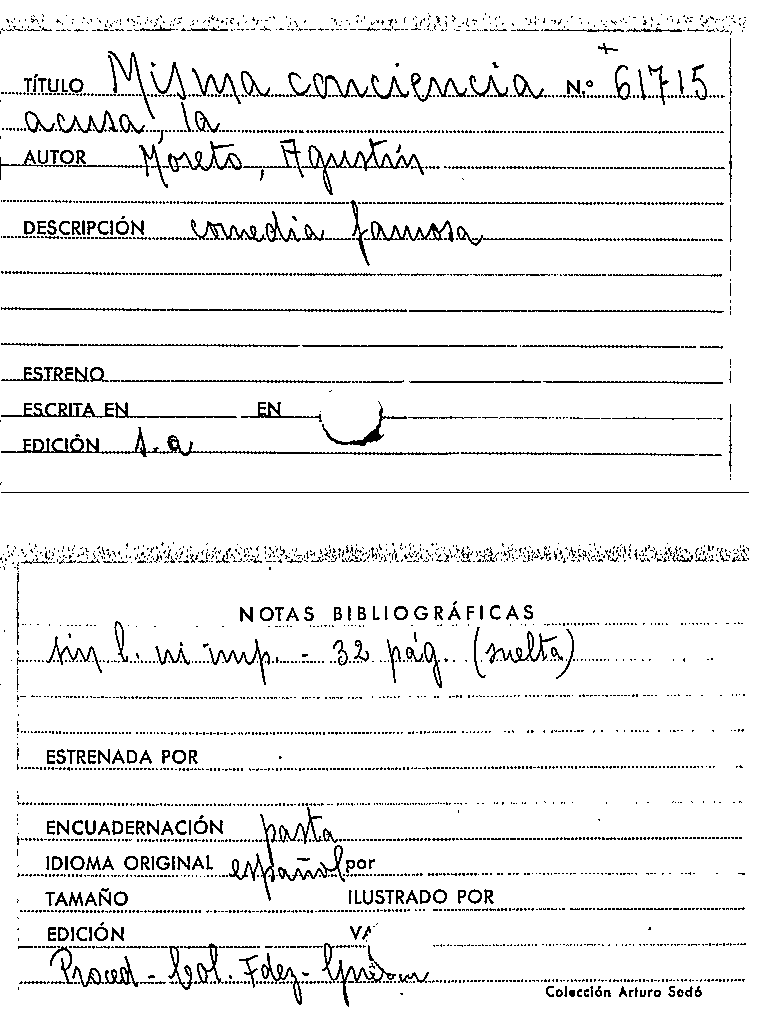 TÍTULO Misma conciencia N.º 61715
+
acusa, la
AUTOR Moreto, Agustín
DESCRIPCIÓN comedia famosa
ESTRENO
ESCRITA EN EN
EDICIÓN s.a
NOTAS BIBLIOGRÁFICAS
sin l. ni imp. - 32 pág. (suelta)
ESTRENADA POR
ENCUADERNACIÓN pasta
IDIOMA ORIGINAL español por
TAMAÑO ILUSTRADO POR
EDICIÓN
Proced - Col. Fdez -
Colección Arturo Sedó